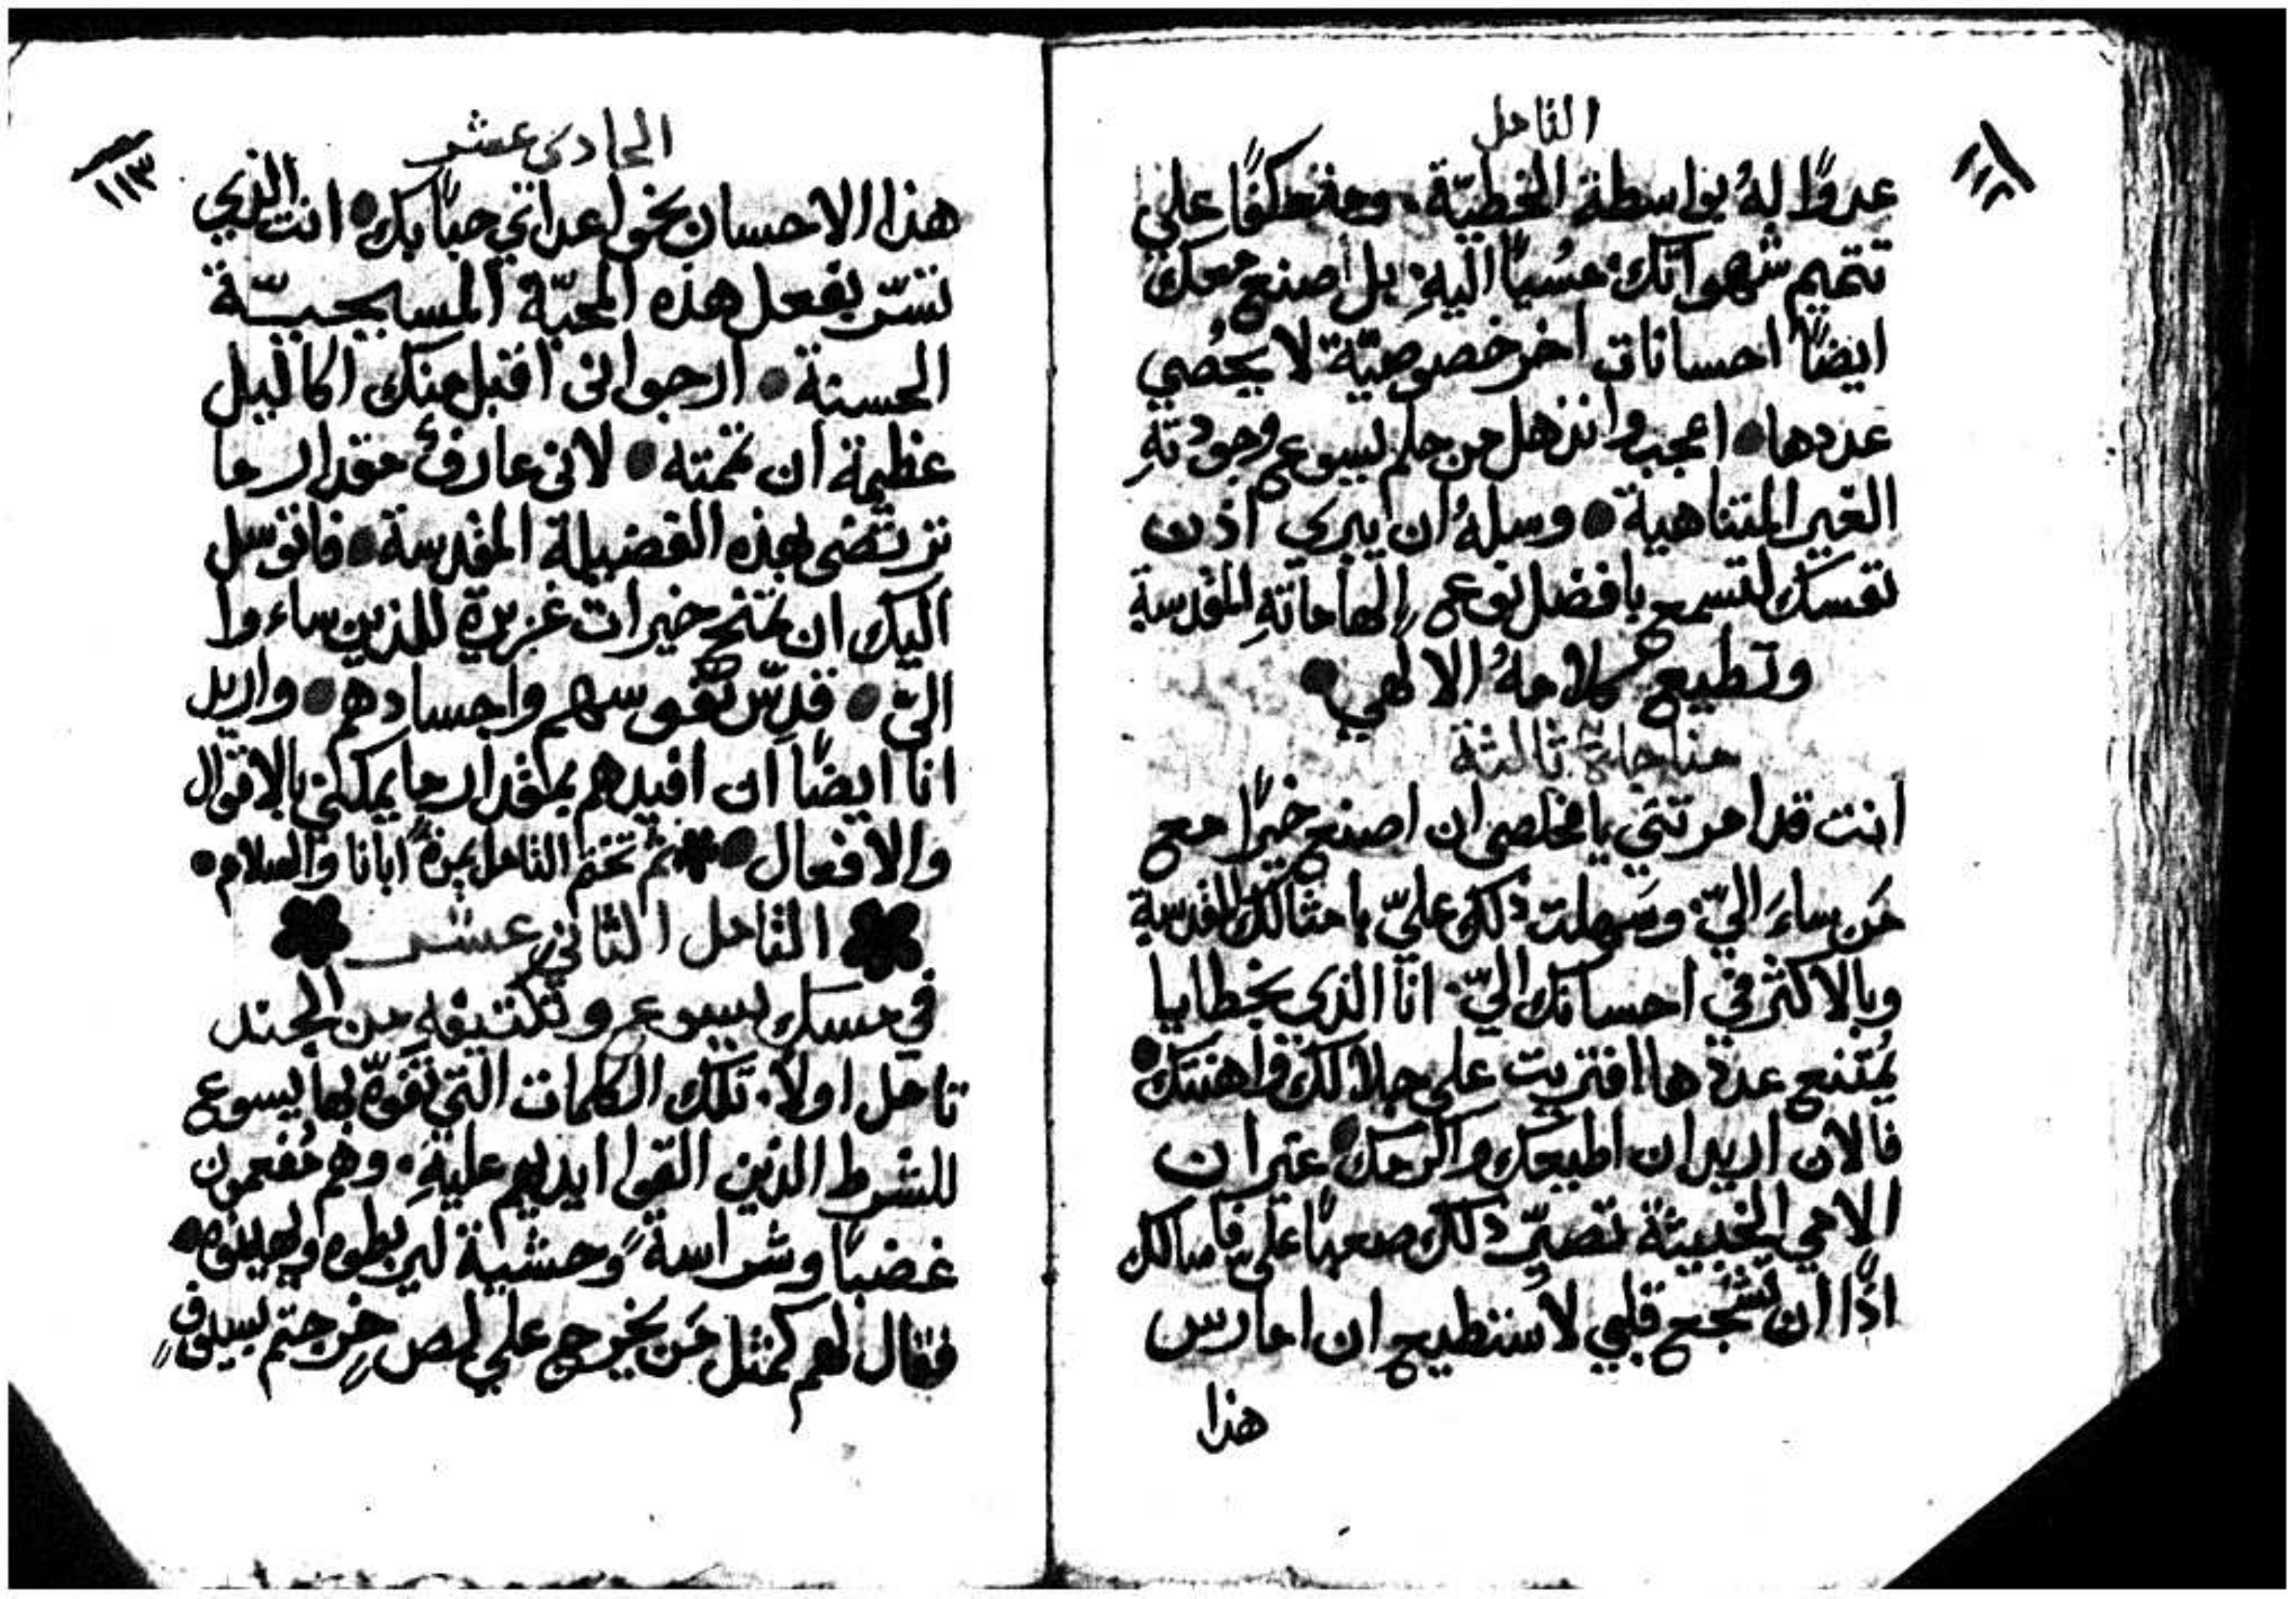 التامل
١١٢
عدوًا لهُ بواسطة الخطيّة. ومنعكفًا علي
تتميم شهواتك. مسُيًا اليهِ. بل أصنع معك
ايضًا احسانات اخر خصوصيّة لا يحُصي
عددها اعجب واندهل من حلم يسوع وجودتهِ
الغير المتناهية وسلهُ ان يبري اذن
نفسك لتسمع بافضل نوع إلهاماتهِ المقدسة
وتطيع كلامهُ الالهي
مناجاة ثالثة
انت قد امرتني يا مخلصي ان اصنع خيرًا مع
مَن ساءَ اليّ. وسَهلت ذلك عليّ بامثالك المقدسة
وبالاكثر في احسانك اليّ. انا الذي بخطايا
يمُتنع عددها افتريت علي جلالك واهنتك
فالان اريد ان اطيعك واكرمك غير ان
الامي الخبيثة تصيّر ذلك صعبًا عليّ فاسالك
اذًا ان تشجع قلبي لاستطيع ان امارس
هذا
الحادي عشر
١١٣
هذا الاحسان نحو اعداي حبًا بك انت الذي
تسّر بفعل هذه المحبّة المسيحيّة
الحسنة ارجو اني اقبل منك اكاليل
عظيمة ان تممته لاني عارفٌ مقدار ما
ترتضي بهذه الفضيلة المقدسة فاتوسل
اليك ان تمنح خيرات غزيرة للذين ساءوا
اليّ قدِّس نفوسهم واجسادهم واريد
انا ايضًا ان افيدهم بمقدار ما يمكنني بالاقوال
والافعال ثم تختم التامل بمرة ابانا والسلام
التامل الثاني عشر
في مسك يسوع وتكتيفهِ من الجند
تامل اولاً. تلك الكلمات التي تفوّه بها يسوع
للشرط الذين القوا ايديهم عليهِ. وهم مُفعمون
غضبًا وشراسةً وحشية ليربطوه ويهينوه
فقال لهم كمثل مَن يخرج علي لص خرجتم بسيوفٍ